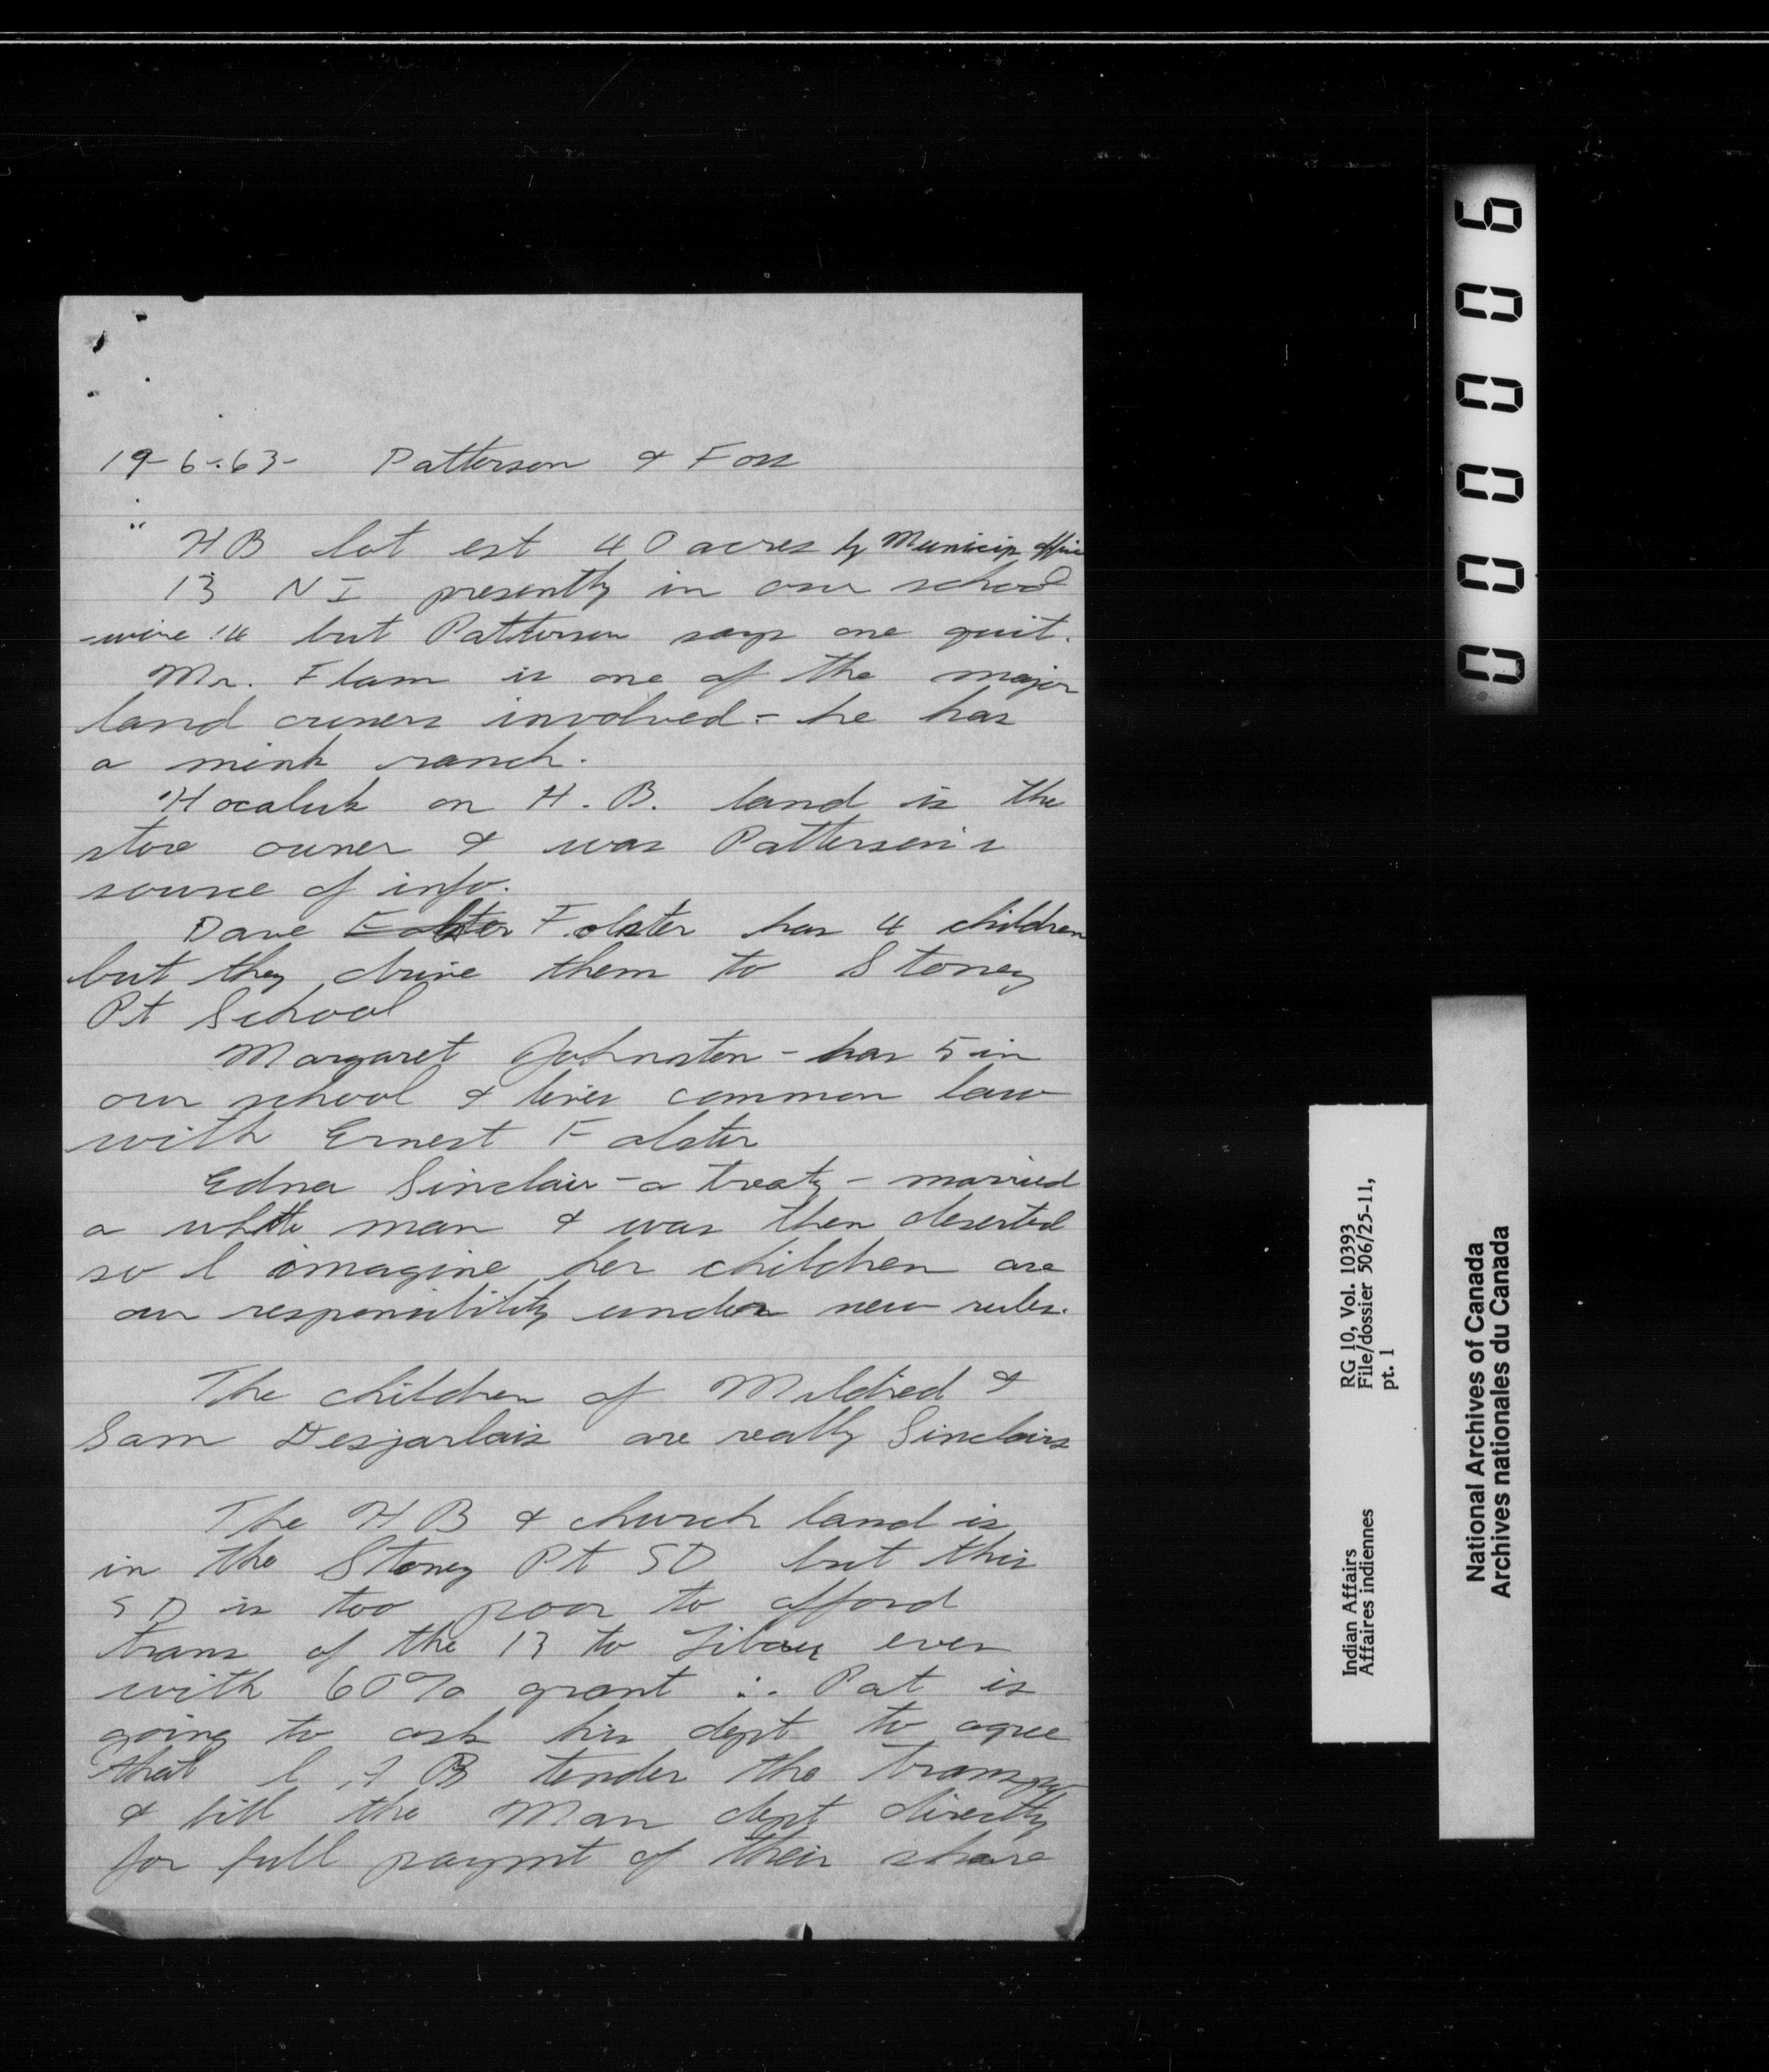 19-6-63- Patterson & Foss
HB lot est 40 acres by Municip office
13 NI presently in our school
were 14 but Patterson says one quit.
Mr. Flam is one of the major
land owners involved - he has
a mink ranch.
Hocaluk on H. B. land is the
store owner & was Patterson's
source of info.
Dave Folster has 4 children
but they drive them to Stoney
Pt School
Margaret Johnston - has 5 in
our school & lives common law
with Ernest Folster
Edna Sinclair - a treaty - married
a white man & was then deserted
so I imagine her children are
our responsibility under new rules.
The children of Mildred &
Sam Desjarlais are really Sinclairs
The HB & church land is
in the Stoney Pt SD but this
SD is too poor to afford
trans of the 13 to Libau even
with 60% grant ∴ Pat is
going to ask his dept to agree
that I A B tender the transp
& bill the Man dept directly
for full paymt of their share
000006
RG 10, Vol. 10393
File/dossier 506/25-11,
pt. 1
Indian Affairs
Affaires indiennes
National Archives of Canada
Archives nationales du Canada